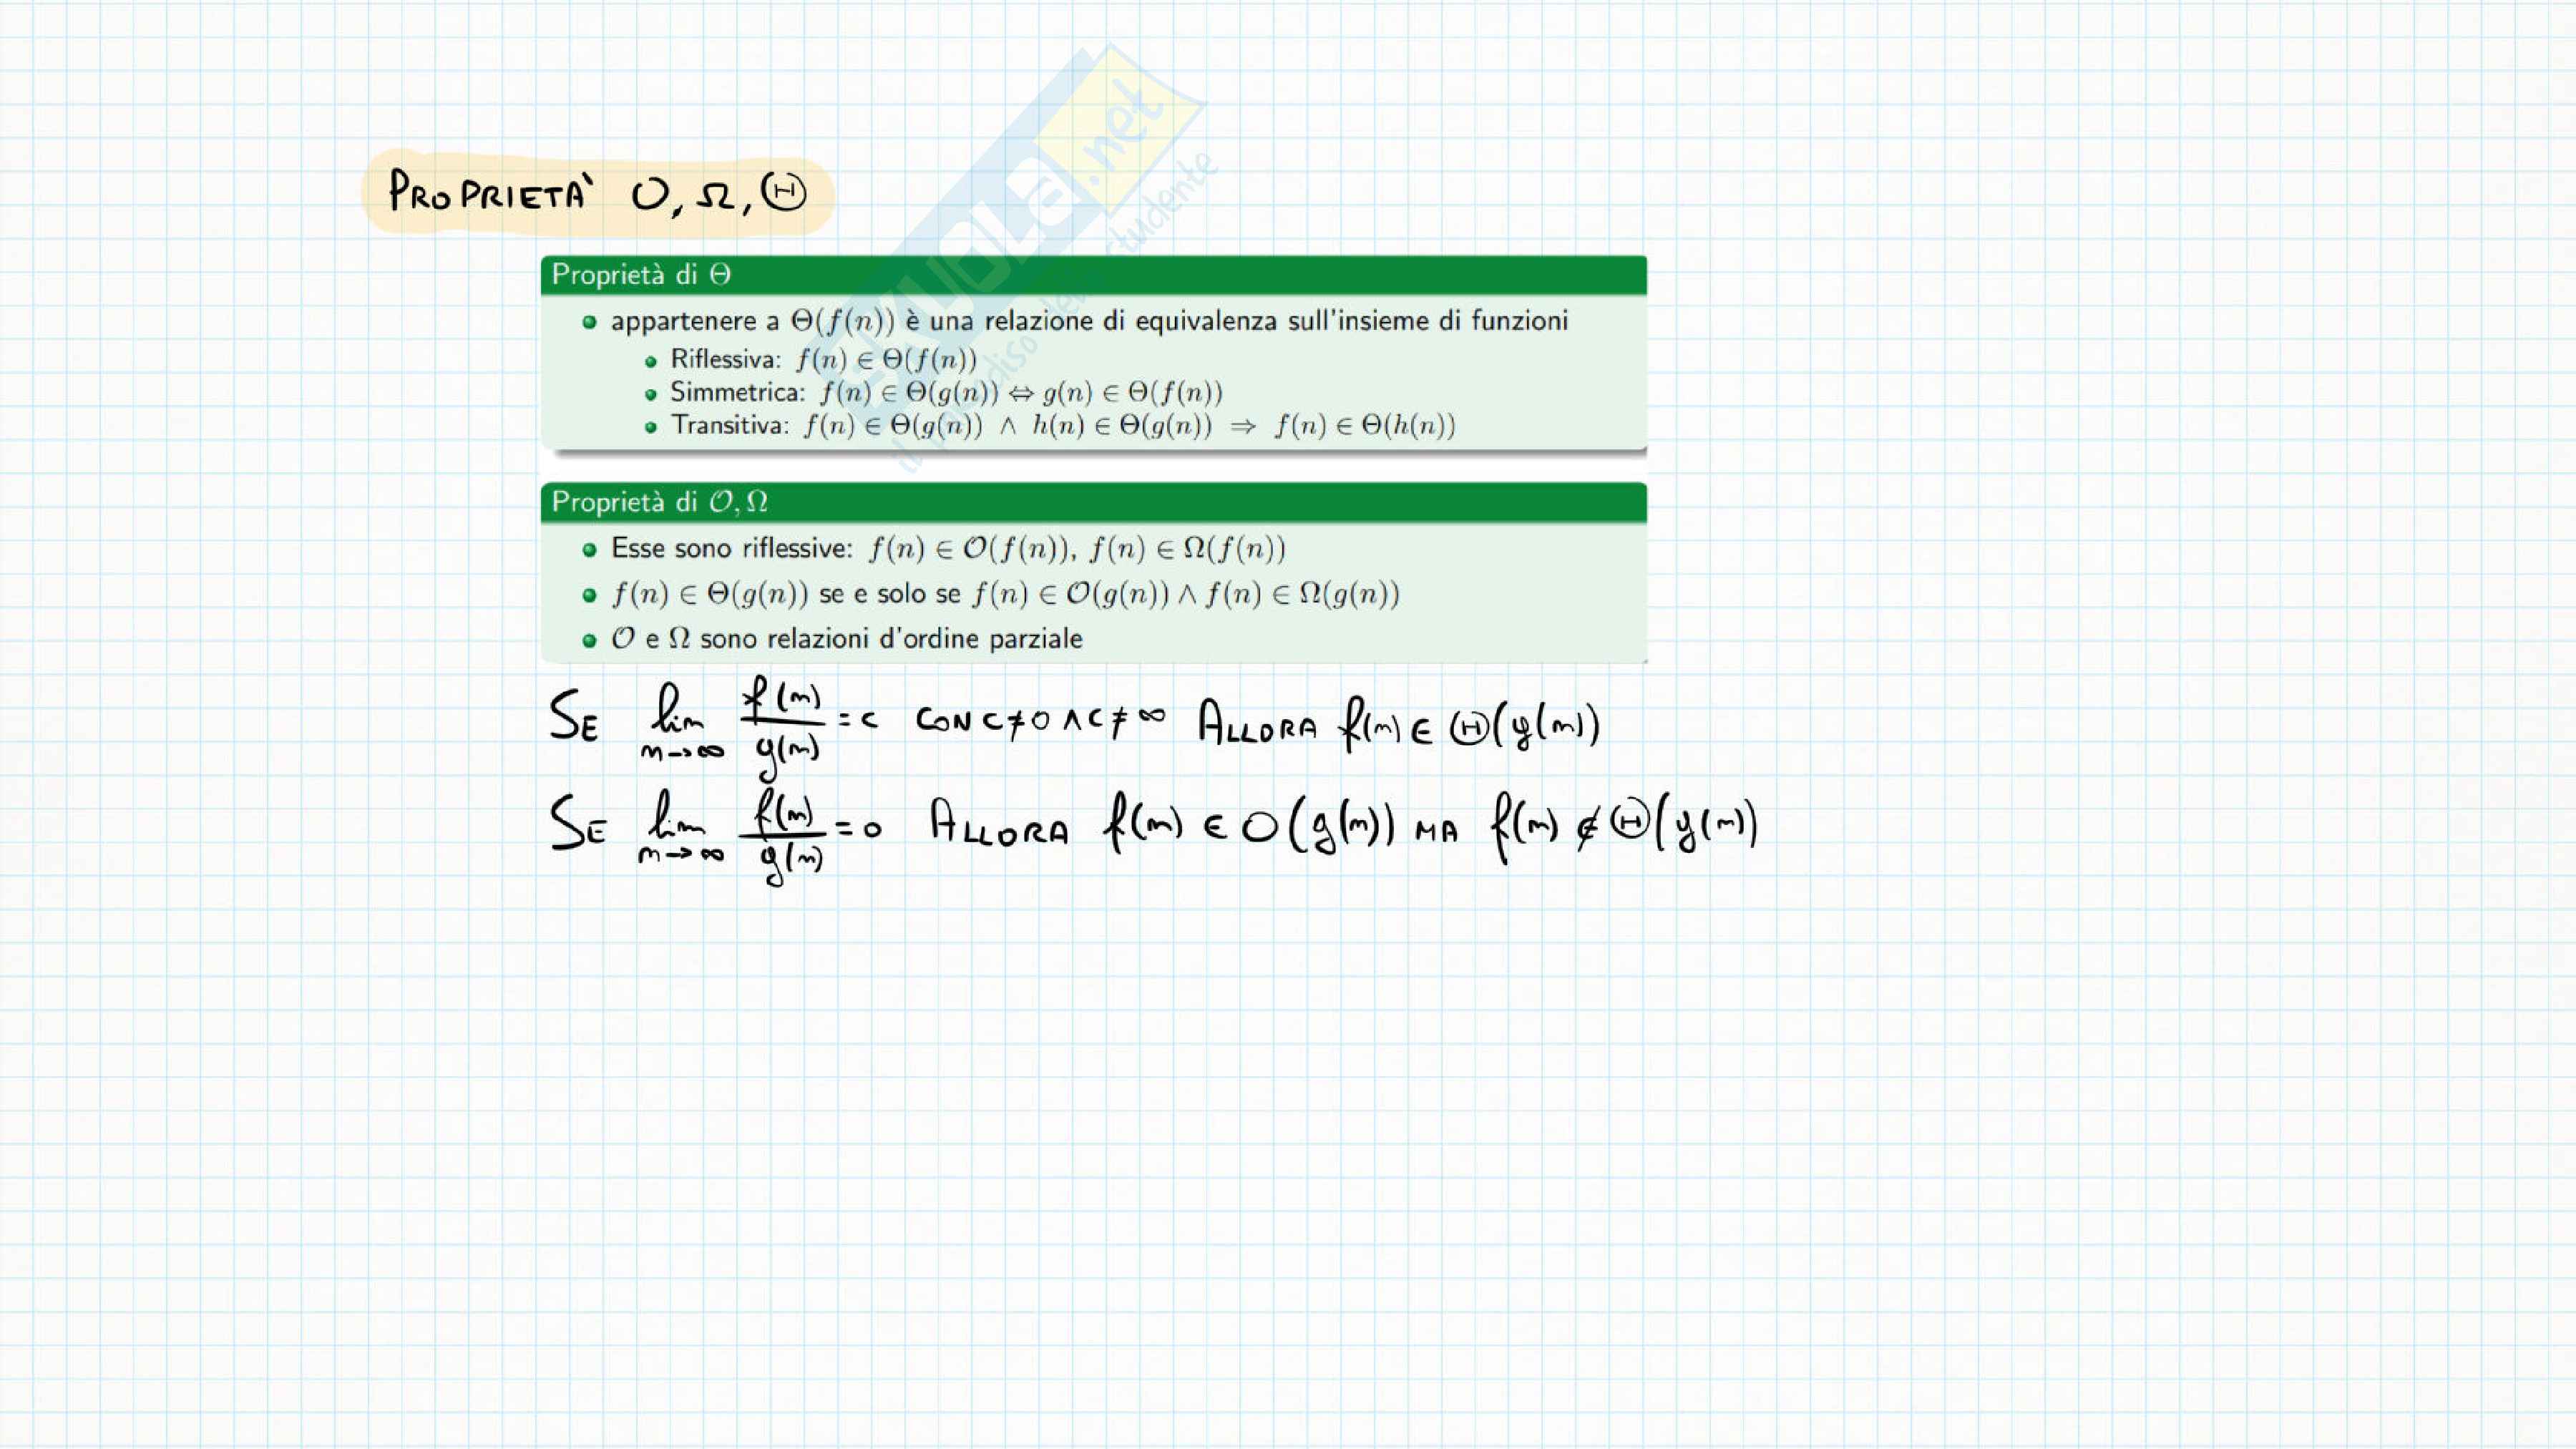 PROPRIETA' O, Ω, Θ
Proprietà di Θ
appartenere a Θ(f(n)) è una relazione di equivalenza sull'insieme di funzioni
Riflessiva: f(n) ∈ Θ(f(n))
Simmetrica: f(n) ∈ Θ(g(n)) ⇔ g(n) ∈ Θ(f(n))
Transitiva: f(n) ∈ Θ(g(n)) ∧ h(n) ∈ Θ(g(n)) ⇒ f(n) ∈ Θ(h(n))
Proprietà di O, Ω
Esse sono riflessive: f(n) ∈ O(f(n)), f(n) ∈ Ω(f(n))
f(n) ∈ Θ(g(n)) se e solo se f(n) ∈ O(g(n)) ∧ f(n) ∈ Ω(g(n))
O e Ω sono relazioni d'ordine parziale
SE lim n→∞ f(n)/g(n) = c CON C≠0 ∧ C≠∞ ALLORA f(n) ∈ Θ(g(n))
SE lim n→∞ f(n)/g(n) = 0 ALLORA f(n) ∈ O(g(n)) MA f(n) ∉ Θ(g(n))